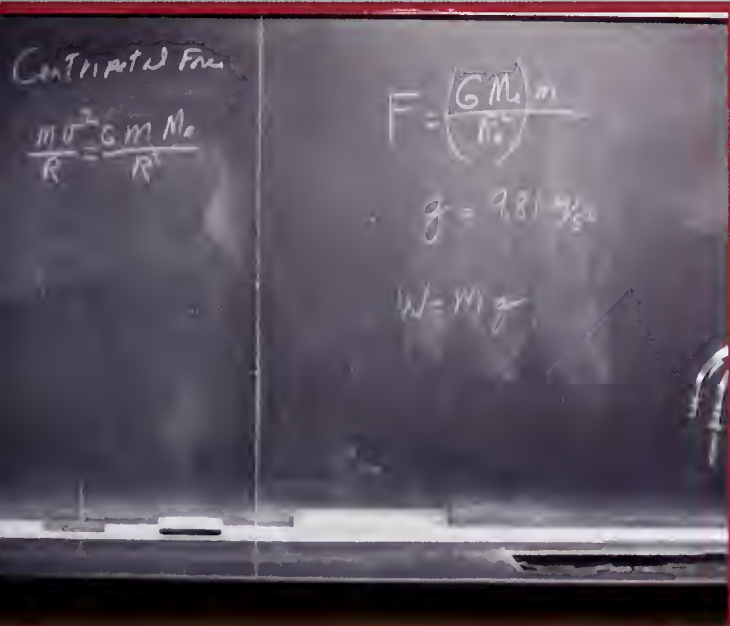 Centripetal Force
mv²/R = G m Mₑ/R²
F = (G Mₑ/Rₑ²) m
g = 9.81 m/s²
W = m g